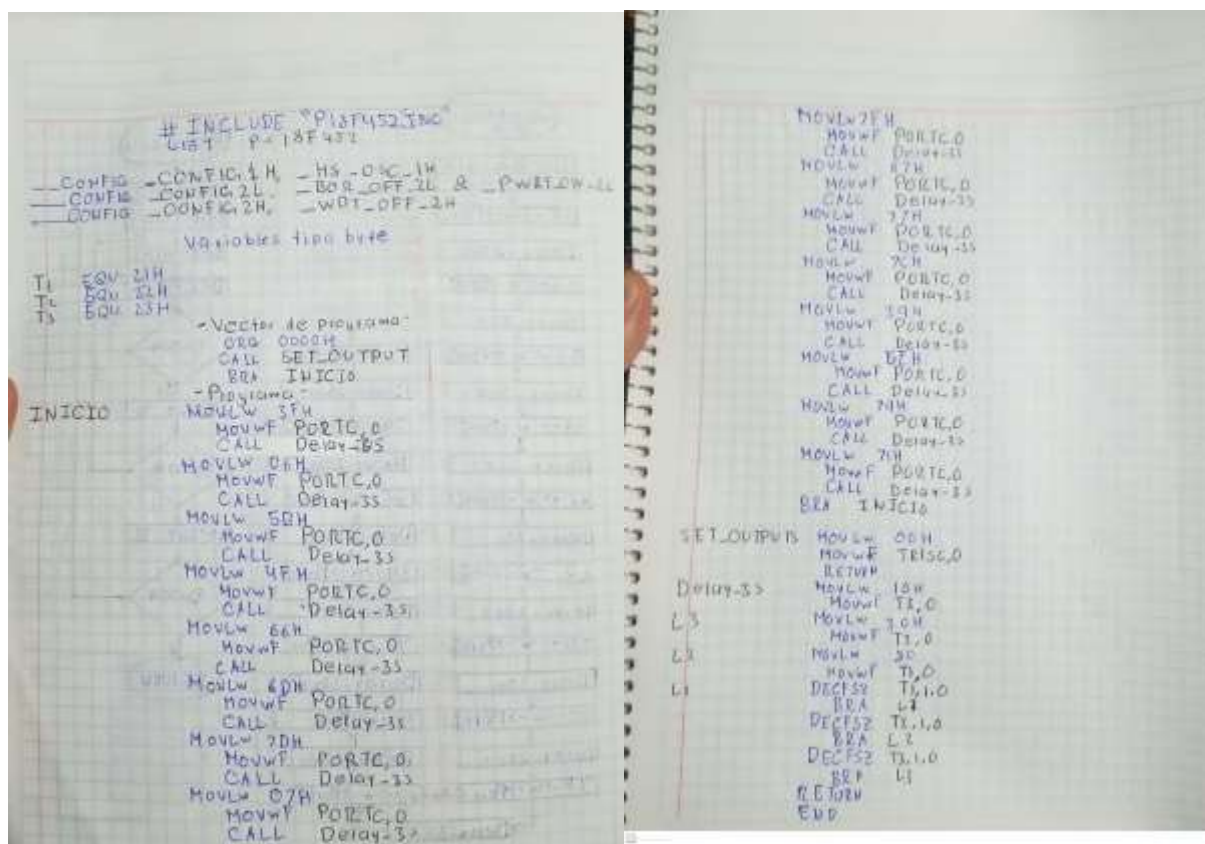 # INCLUDE "P18F452.INC"
LIST P=18F452
__CONFIG _CONFIG1H, _HS_OSC_1H
__CONFIG _CONFIG2L, _BOR_OFF_2L & _PWRT_ON_2L
__CONFIG _CONFIG2H, _WDT_OFF_2H
Variables tipo byte
T1 EQU 21H
T2 EQU 22H
T3 EQU 23H
-Vector de programa-
ORG 0000H
CALL SET_OUTPUT
BRA INICIO
-Programa-
INICIO MOVLW 3FH
MOVWF PORTC,0
CALL Delay-3S
MOVLW 06H
MOVWF PORTC,0
CALL Delay-3S
MOVLW 5BH
MOVWF PORTC,0
CALL Delay-3S
MOVLW 4FH
MOVWF PORTC,0
CALL Delay-3S
MOVLW 66H
MOVWF PORTC,0
CALL Delay-3S
MOVLW 6DH
MOVWF PORTC,0
CALL Delay-3S
MOVLW 7DH
MOVWF PORTC,0
CALL Delay-3S
MOVLW 07H
MOVWF PORTC,0
CALL Delay-3S
MOVLW 7FH
MOVWF PORTC,0
CALL Delay-3S
MOVLW 67H
MOVWF PORTC,0
CALL Delay-3S
MOVLW 77H
MOVWF PORTC,0
CALL Delay-3S
MOVLW 7CH
MOVWF PORTC,0
CALL Delay-3S
MOVLW 39H
MOVWF PORTC,0
CALL Delay-3S
MOVLW
MOVWF PORTC,0
CALL Delay-3S
MOVLW
MOVWF PORTC,0
CALL Delay-3S
MOVLW 71H
MOVWF PORTC,0
CALL Delay-3S
BRA INICIO
SET_OUTPUTS MOVLW 00H
MOVWF TRISC,0
RETURN
Delay-3S MOVLW
MOVWF T3,0
L3 MOVLW
MOVWF
L2 MOVLW
MOVWF T1,0
L1 DECFSZ
BRA
DECFSZ
BRA L2
DECFSZ
BRA
RETURN
END